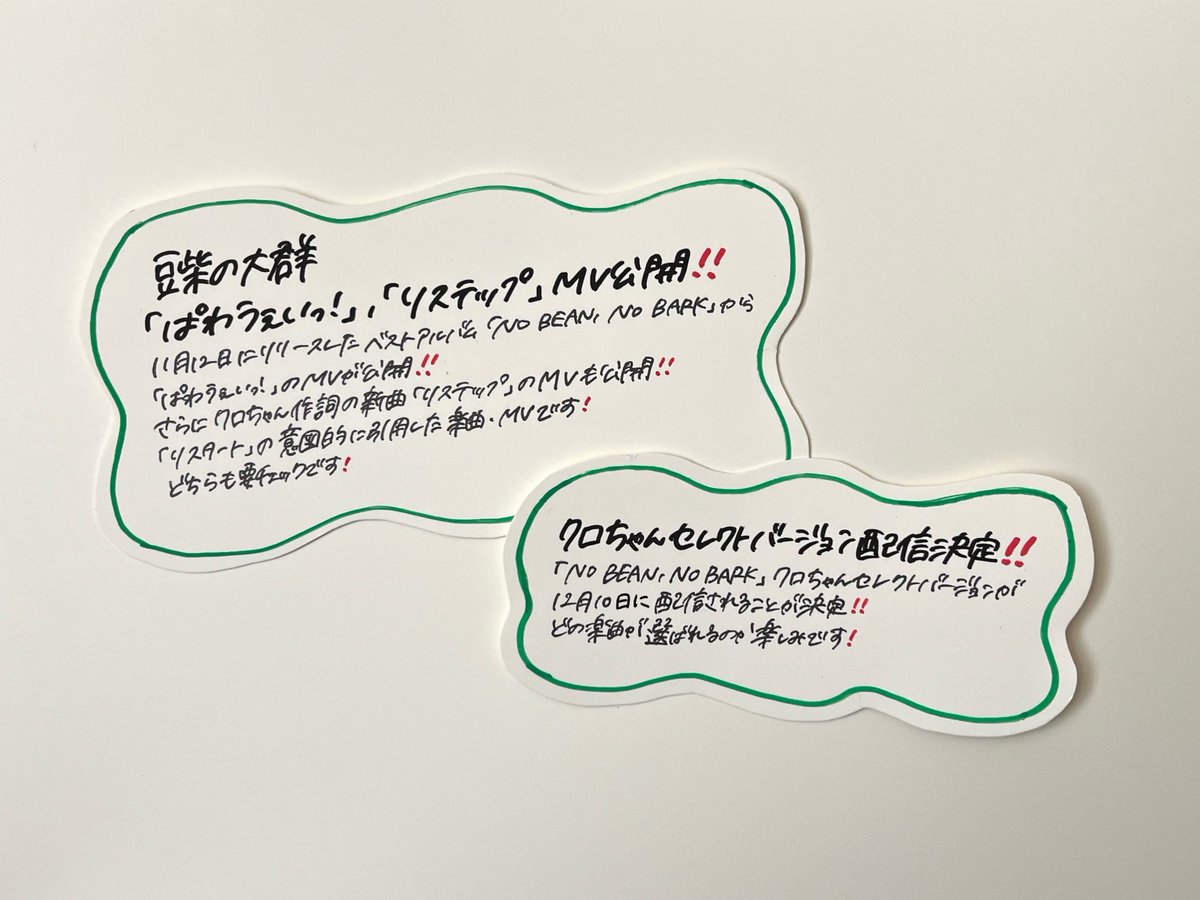 豆柴の大群
「ぱわうぇいっ!」,「リステップ」MV公開!!
11月12日にリリースしたベストアルバム「NO BEAN, NO BARK」から
「ぱわうぇいっ!」のMVが公開!!
さらにクロちゃん作詞の新曲「リステップ」のMVも公開!!
「リスタート」の意図的に引用した楽曲・MVです!
どちらも要チェックです!
クロちゃんセレクトバージョン配信決定!!
「NO BEAN, NO BARK」クロちゃんセレクトバージョンが
12月10日に配信されることが決定!!
どの楽曲が選ばれるのか楽しみです!